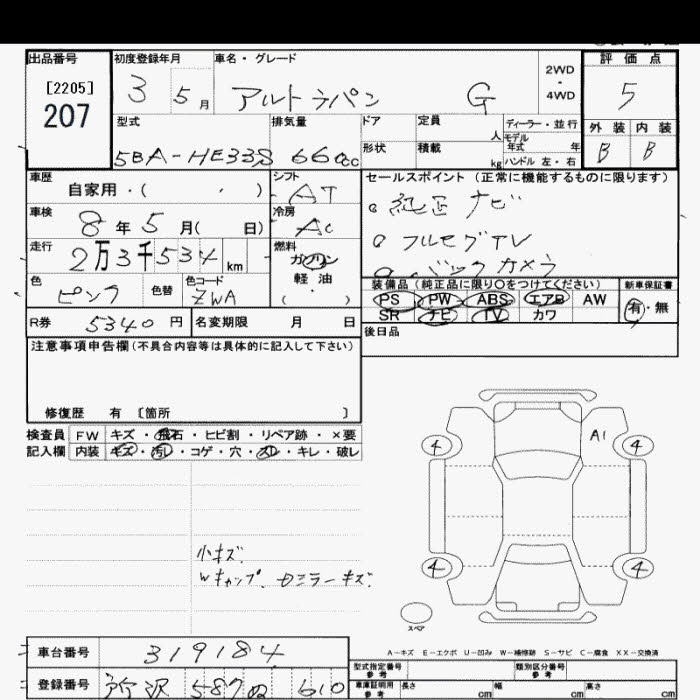 出品番号 初度登録年月 車名・グレード 2WD・4WD 評価点
[2205] 207 3 5月 アルトラパン G 5
型式 排気量 ドア 定員 人 ディーラー・並行 外装 内装
形状 積載 kg モデル年式 年 ハンドル 左・右
5BA-HE33S 660cc B B
車歴 自家用・( ・ ) シフト AT セールスポイント (正常に機能するものに限ります)
車検 8年5月( 日) 冷房 AC 純正ナビ
走行 2万3千534km 燃料 ガソリン 軽油 ・( ) フルセグTV
バックカメラ
色 ピンク 色替 色コード ZWA
装備品(純正品に限り○をつけてください) 新車保証書
PS PW ABS エアB AW 有・無
SR ナビ TV カワ
R券 5340円 名変期限 月 日 後日品
注意事項申告欄(不具合内容等は具体的に記入して下さい)
修復歴 有 〔箇所 〕
検査員 FW キズ・飛石・ヒビ割・リペア跡・×要
記入欄 内装 キズ・汚レ・コゲ・穴・スレ・キレ・破レ
4 A1 4
小キズ
Wキャップ. ミラーキズ.
4 4
スペア
A-キズ E-エクボ U-凹み W-補修跡 S-サビ C-腐食 XX-交換済
車台番号 319184
型式指定番号 参考 類別区分番号 参考
登録番号 所沢 587 ぬ 610
車庫証明用 参考 長さ cm 幅 cm 高さ cm